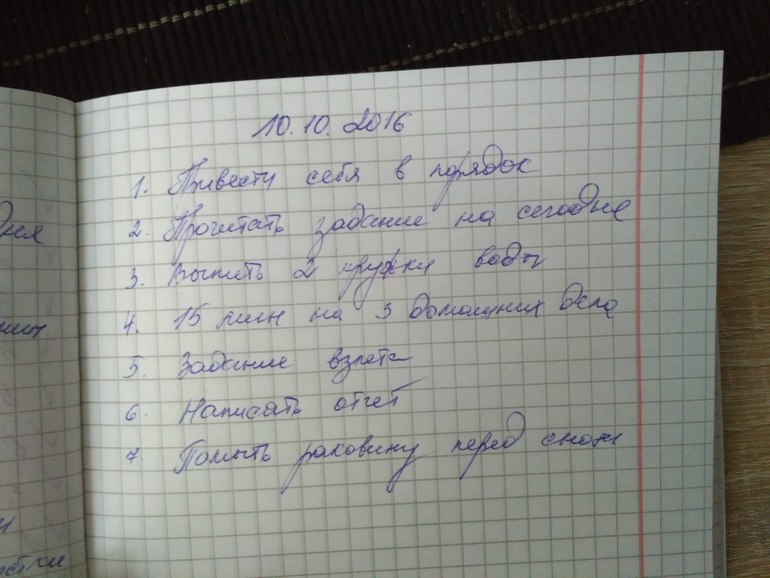 10.10.2016
1. Привести себя в порядок
2. Прочитать задание на сегодня
дня
3. Выпить 2 кружки воды
4. 15 мин на 3 домашних дела
5. Задание взлета
6. Написать отчет
7. Помыть раковину перед сном